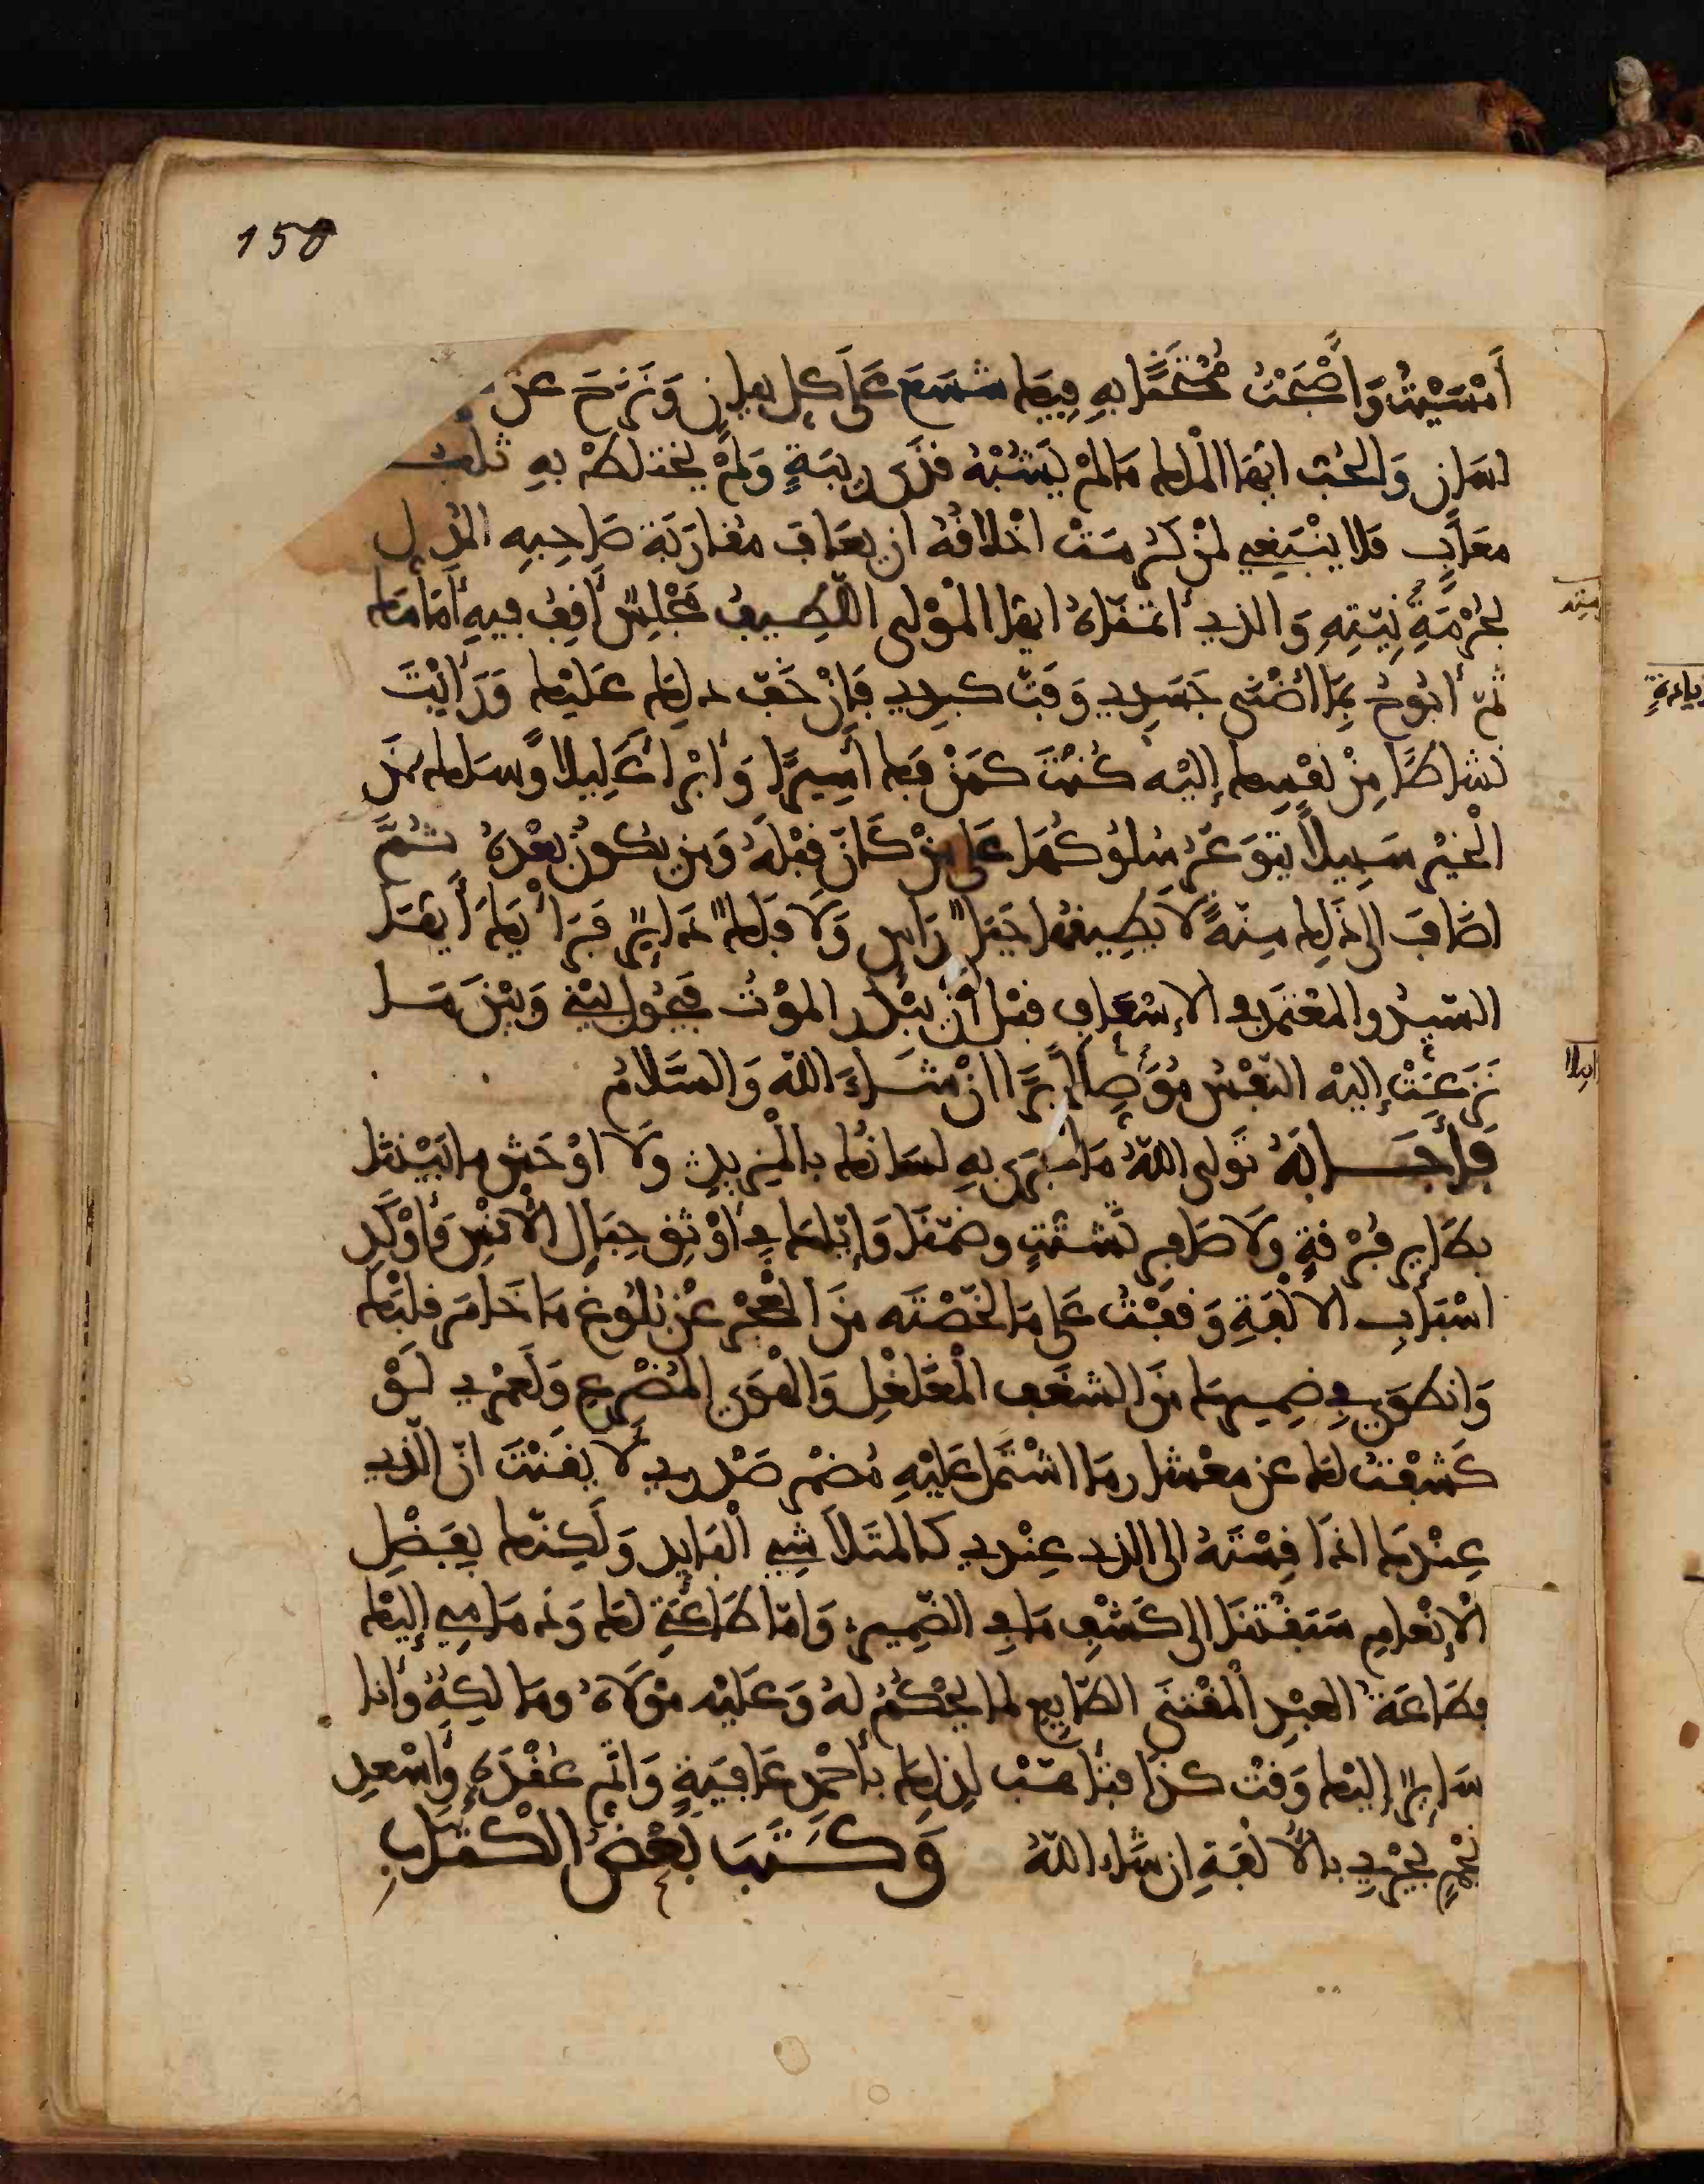 150
أَمْسَيْتُ وَأَصْبَحْتُ مُخْتَصًّا بِهِ فيما شسع على كل بيان ونزح عن
لسان والحب ايها الملك ما لم يشبه قذى ريبة ولم يختلط به ثلب
معاب فلا ينبغي لمن كرمت اخلاقه ان يعاف مقاربة صاحبه المدل
بحرمة نيته والذي أتمناه ايها المولى اللطيف مجلس أقف فيه أمامك
ثم أبوح بما أضنى جسدي وفت كبدي فان خف ذلك عليك ورأيت
نشاطا من نفسك إليه كنت كمن فك أسيرا وأبرأ عليلا وسلك من
الخير سبيلا يتوعر سلوكها على من كان قبله ومن يكون بعده ثم
اضاف الى ذلك منة لا يطيقها جبل راس ولا فلك داير فرأيك أيها
السيد المعتمد في الإسعاف قبل أن يبدر الموت فيحول بيني وبين ما
نزعت إليه النفس موصلا برا ان شاء الله والسلام
فأجابه تولى الله ما جرى به لسانك بالمزيد ولا اوحش ما بيننا
بطاير فرقة ولا صافر تشتت وضمنا وإياك في أوثق حبال الأنس وأوكد
اسباب الالفة وقفت على ما لخصته من العجز عن بلوغ ما خامر قلبك
وانطوى في ضميرك من الشغف المغلغل والهوى المضرع ولعمري لو
كشفت لك عن معشار ما اشتمل عليه مضمر صدري لأيقنت ان الذي
عندك اذا قسته الى الذي عندي كالمتلاشي البايد ولكنك بفضل
الإنعام سبقتنا الى كشف ما في الضمير وأما طاعتي لك وذمامي إليك
فطاعة العبد المقتنى الطايع لما يحكم له وعليه مولاه ومالكه وأنا
ساير إليك وقت كذا فتأهب لذلك بأحمد عافية وأتم عقدة وأسعد
نجم يجري بالألفة ان شاء الله وكتب بعض الكتاب